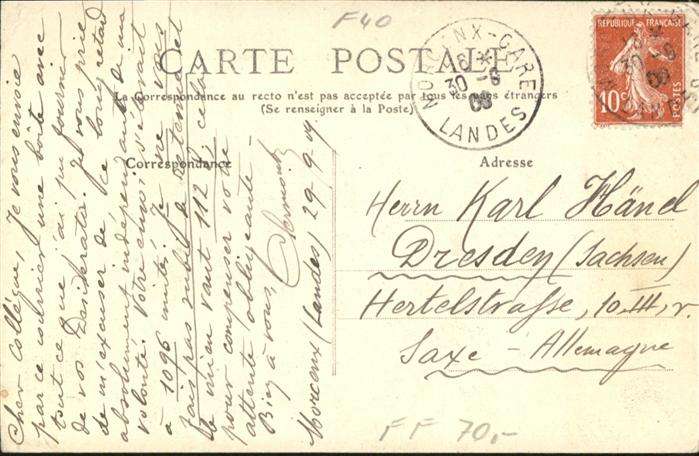 F40
CARTE POSTALE
La Correspondance au recto n'est pas acceptée par tous les pays étrangers
(Se renseigner à la Poste)
Correspondance
Adresse
RÉPUBLIQUE FRANÇAISE
10c
POSTES
MORCENX-GARE
30 -9
LANDES
Cher Collègue, Je vous envoie
par ce courrier une boîte avec
tout ce que j'ai pu fournir
de vos Desiderata. Je vous prie
de m'excuser de ce long retard
absolument indépendant de ma
volonté. Votre envoi s'élevant
à 1096 unités, je ne vous
fais pas subir de retenue et
le mien vaut 112, ceci
pour compenser votre
attente obligeante -
Bien à vous,
Morcenx (Landes, 29-9-09
Herrn Karl Hänel
Dresden (Sachsen)
Hertelstrasse, 10 III, r.
Saxe - Allemagne
FF 70,-